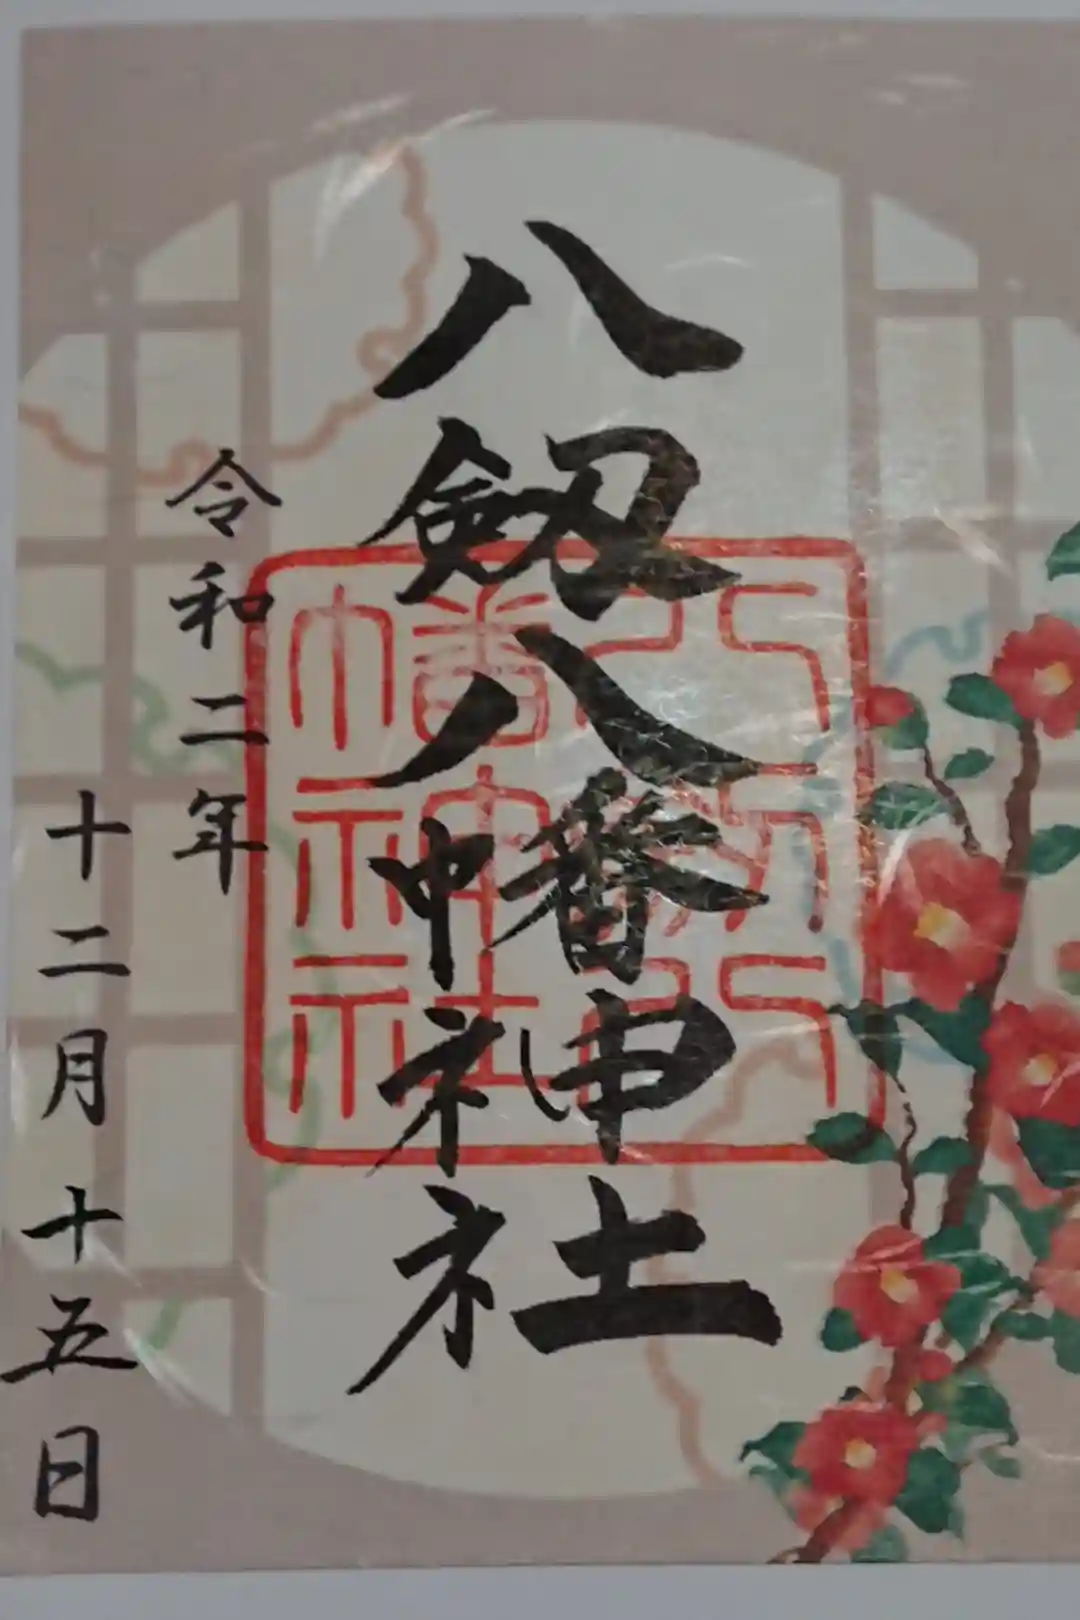 八剱八幡神社
令和二年
十二月十五日
八剱八
幡神社